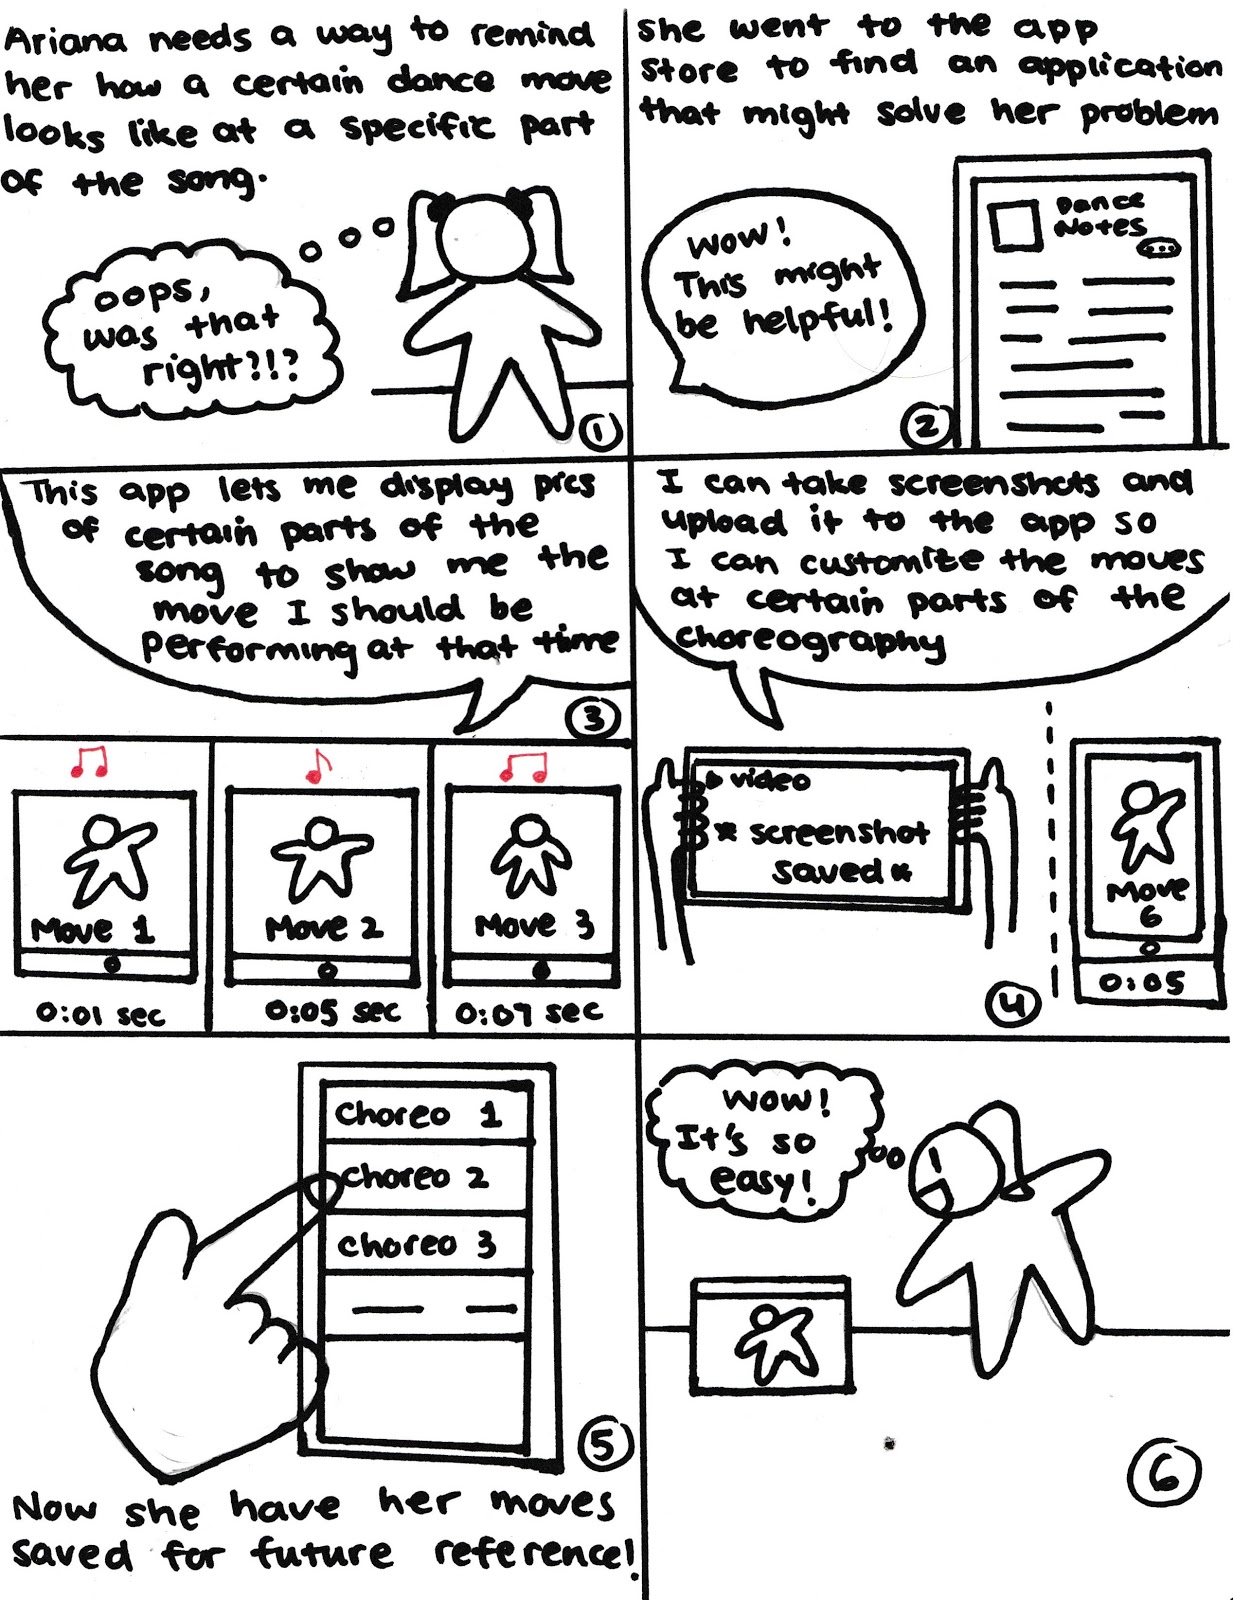 Ariana needs a way to remind
her how a certain dance move
looks like at a specific part
of the song.
oops,
was that
right?!?
1
she went to the app
store to find an application
that might solve her problem
Wow!
This might
be helpful!
Dance
Notes
2
This app lets me display pics
of certain parts of the
song to show me the
move I should be
performing at that time
3
Move 1
0:01 sec
Move 2
0:05 sec
Move 3
0:07 sec
I can take screenshots and
upload it to the app so
I can customize the moves
at certain parts of the
choreography
video
* screenshot
saved *
4
Move
6
0:05
Choreo 1
Choreo 2
Choreo 3
5
Now she have her moves
saved for future reference!
Wow!
It's so
easy!
6